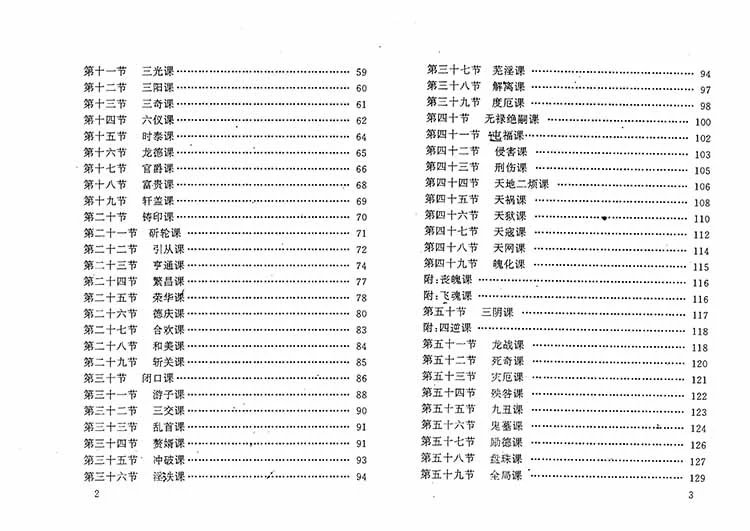 第十一节 三光课 …… 59
第十二节 三阳课 …… 60
第十三节 三奇课 …… 61
第十四节 六仪课 …… 62
第十五节 时泰课 …… 64
第十六节 龙德课 …… 65
第十七节 官爵课 …… 66
第十八节 富贵课 …… 68
第十九节 轩盖课 …… 69
第二十节 铸印课 …… 70
第二十一节 斫轮课 …… 71
第二十二节 引从课 …… 72
第二十三节 亨通课 …… 74
第二十四节 繁昌课 …… 77
第二十五节 荣华课 …… 78
第二十六节 德庆课 …… 80
第二十七节 合欢课 …… 83
第二十八节 和美课 …… 84
第二十九节 斩关课 …… 85
第三十节 闭口课 …… 86
第三十一节 游子课 …… 88
第三十二节 三交课 …… 90
第三十三节 乱首课 …… 91
第三十四节 赘婿课 …… 91
第三十五节 冲破课 …… 93
第三十六节 淫泆课 …… 94
2
第三十七节 芜淫课 …… 94
第三十八节 解离课 …… 97
第三十九节 度厄课 …… 98
第四十节 无禄绝嗣课 …… 100
第四十一节 屯福课 …… 102
第四十二节 侵害课 …… 103
第四十三节 刑伤课 …… 105
第四十四节 天地二烦课 …… 106
第四十五节 天祸课 …… 108
第四十六节 天狱课 …… 110
第四十七节 天寇课 …… 112
第四十八节 天网课 …… 114
第四十九节 魄化课 …… 115
附：丧魄课 …… 116
附：飞魂课 …… 116
第五十节 三阴课 …… 117
附：四逆课 …… 118
第五十一节 龙战课 …… 118
第五十二节 死奇课 …… 120
第五十三节 灾厄课 …… 121
第五十四节 殃咎课 …… 122
第五十五节 九丑课 …… 123
第五十六节 鬼墓课 …… 124
第五十七节 励德课 …… 126
第五十八节 盘珠课 …… 127
第五十九节 全局课 …… 129
3